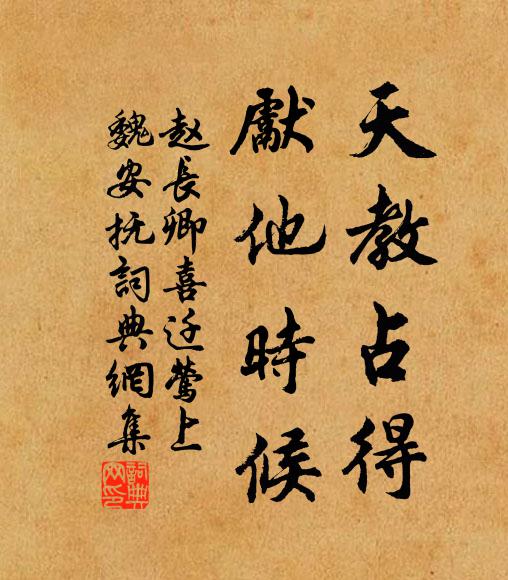 天教占得
獻他時候
赵長卿喜迁鶯上
魏安抚詞典網集
詞典网印